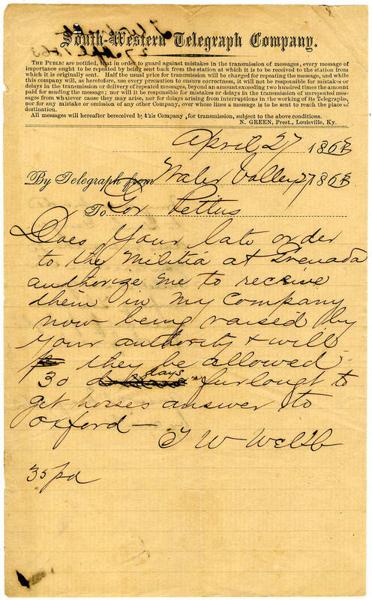 South-Western Telegraph Company.
THE PUBLIC are notified, that in order to guard against mistakes in the transmission of messages, every message
of importance ought to be repeated by being sent back from the station at which it is to be received to the station from
which it is originally sent. Half the usual price for transmission will be charged for repeating the message, and while
this company will, as heretofore, use every precaution to ensure correctness, it will not be responsible for mistakes or
delays in the transmission or delivery of repeated messages, beyond an amount exceeding two hundred times the amount
paid for sending the message; nor will it be responsible for mistakes or delays in the transmission of unrepeated messages
from whatever cause they may arise, nor for delays arising from interruptions in the working of its Telegraphs,
nor for any mistake or omission of any other Company, over whose lines a message is to be sent to reach the place of
destination.
All messages will hereafter be received by this Company, for transmission, subject to the above conditions.
N. GREEN, Prest., Louisville, Ky.
April 27 1863
By Telegraph from Water Valley 27 1863
To Gov Pettus
Does Your late order
to the Militia at Grenada
authorize me to receive
them in my Company
now being raised by
Your authority & will
they be allowed
30 days furlough to
get horses answer to
Oxford—
T W Webb
35 pd